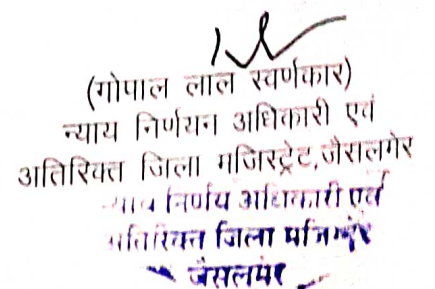 (गोपाल लाल स्वर्णकार)
न्याय निर्णयन अधिकारी एवं
अतिरिक्त जिला मजिस्ट्रेट,जैसलमेर
न्याय निर्णय अधिकारी एवं
अतिरिक्त जिला मजिस्ट्रेट
जैसलमेर